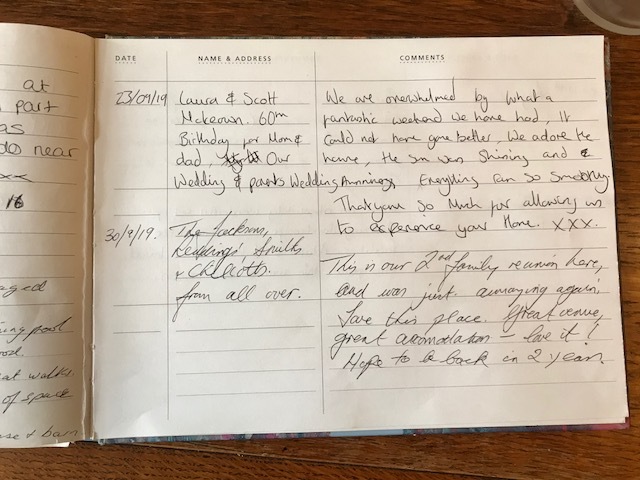 at
part
as
do near
xx
16
aged
ing pool
at walks.
of space
se & barn
DATE NAME & ADDRESS COMMENTS
23/09/19 Laura & Scott We are overwhelmed by what a
Mckeown. 60th fantastic weekend we have had, It
Birthday for Mom & could not have gone better, We adore the
dad, Our home, the sun was Shining and
Wedding & parents Wedding Anniversary Everything ran so smoothly.
Thankyou so much for allowing us
to experience your Home. xxx.
30/9/19. The Jacksons,
Reddings', Smiths
& Chilcotts. This is our 2nd family reunion here,
from all over. and was just amazing again,
Love this place. Great venue,
great accomodation - love it!
Hope to be back in 2 years.